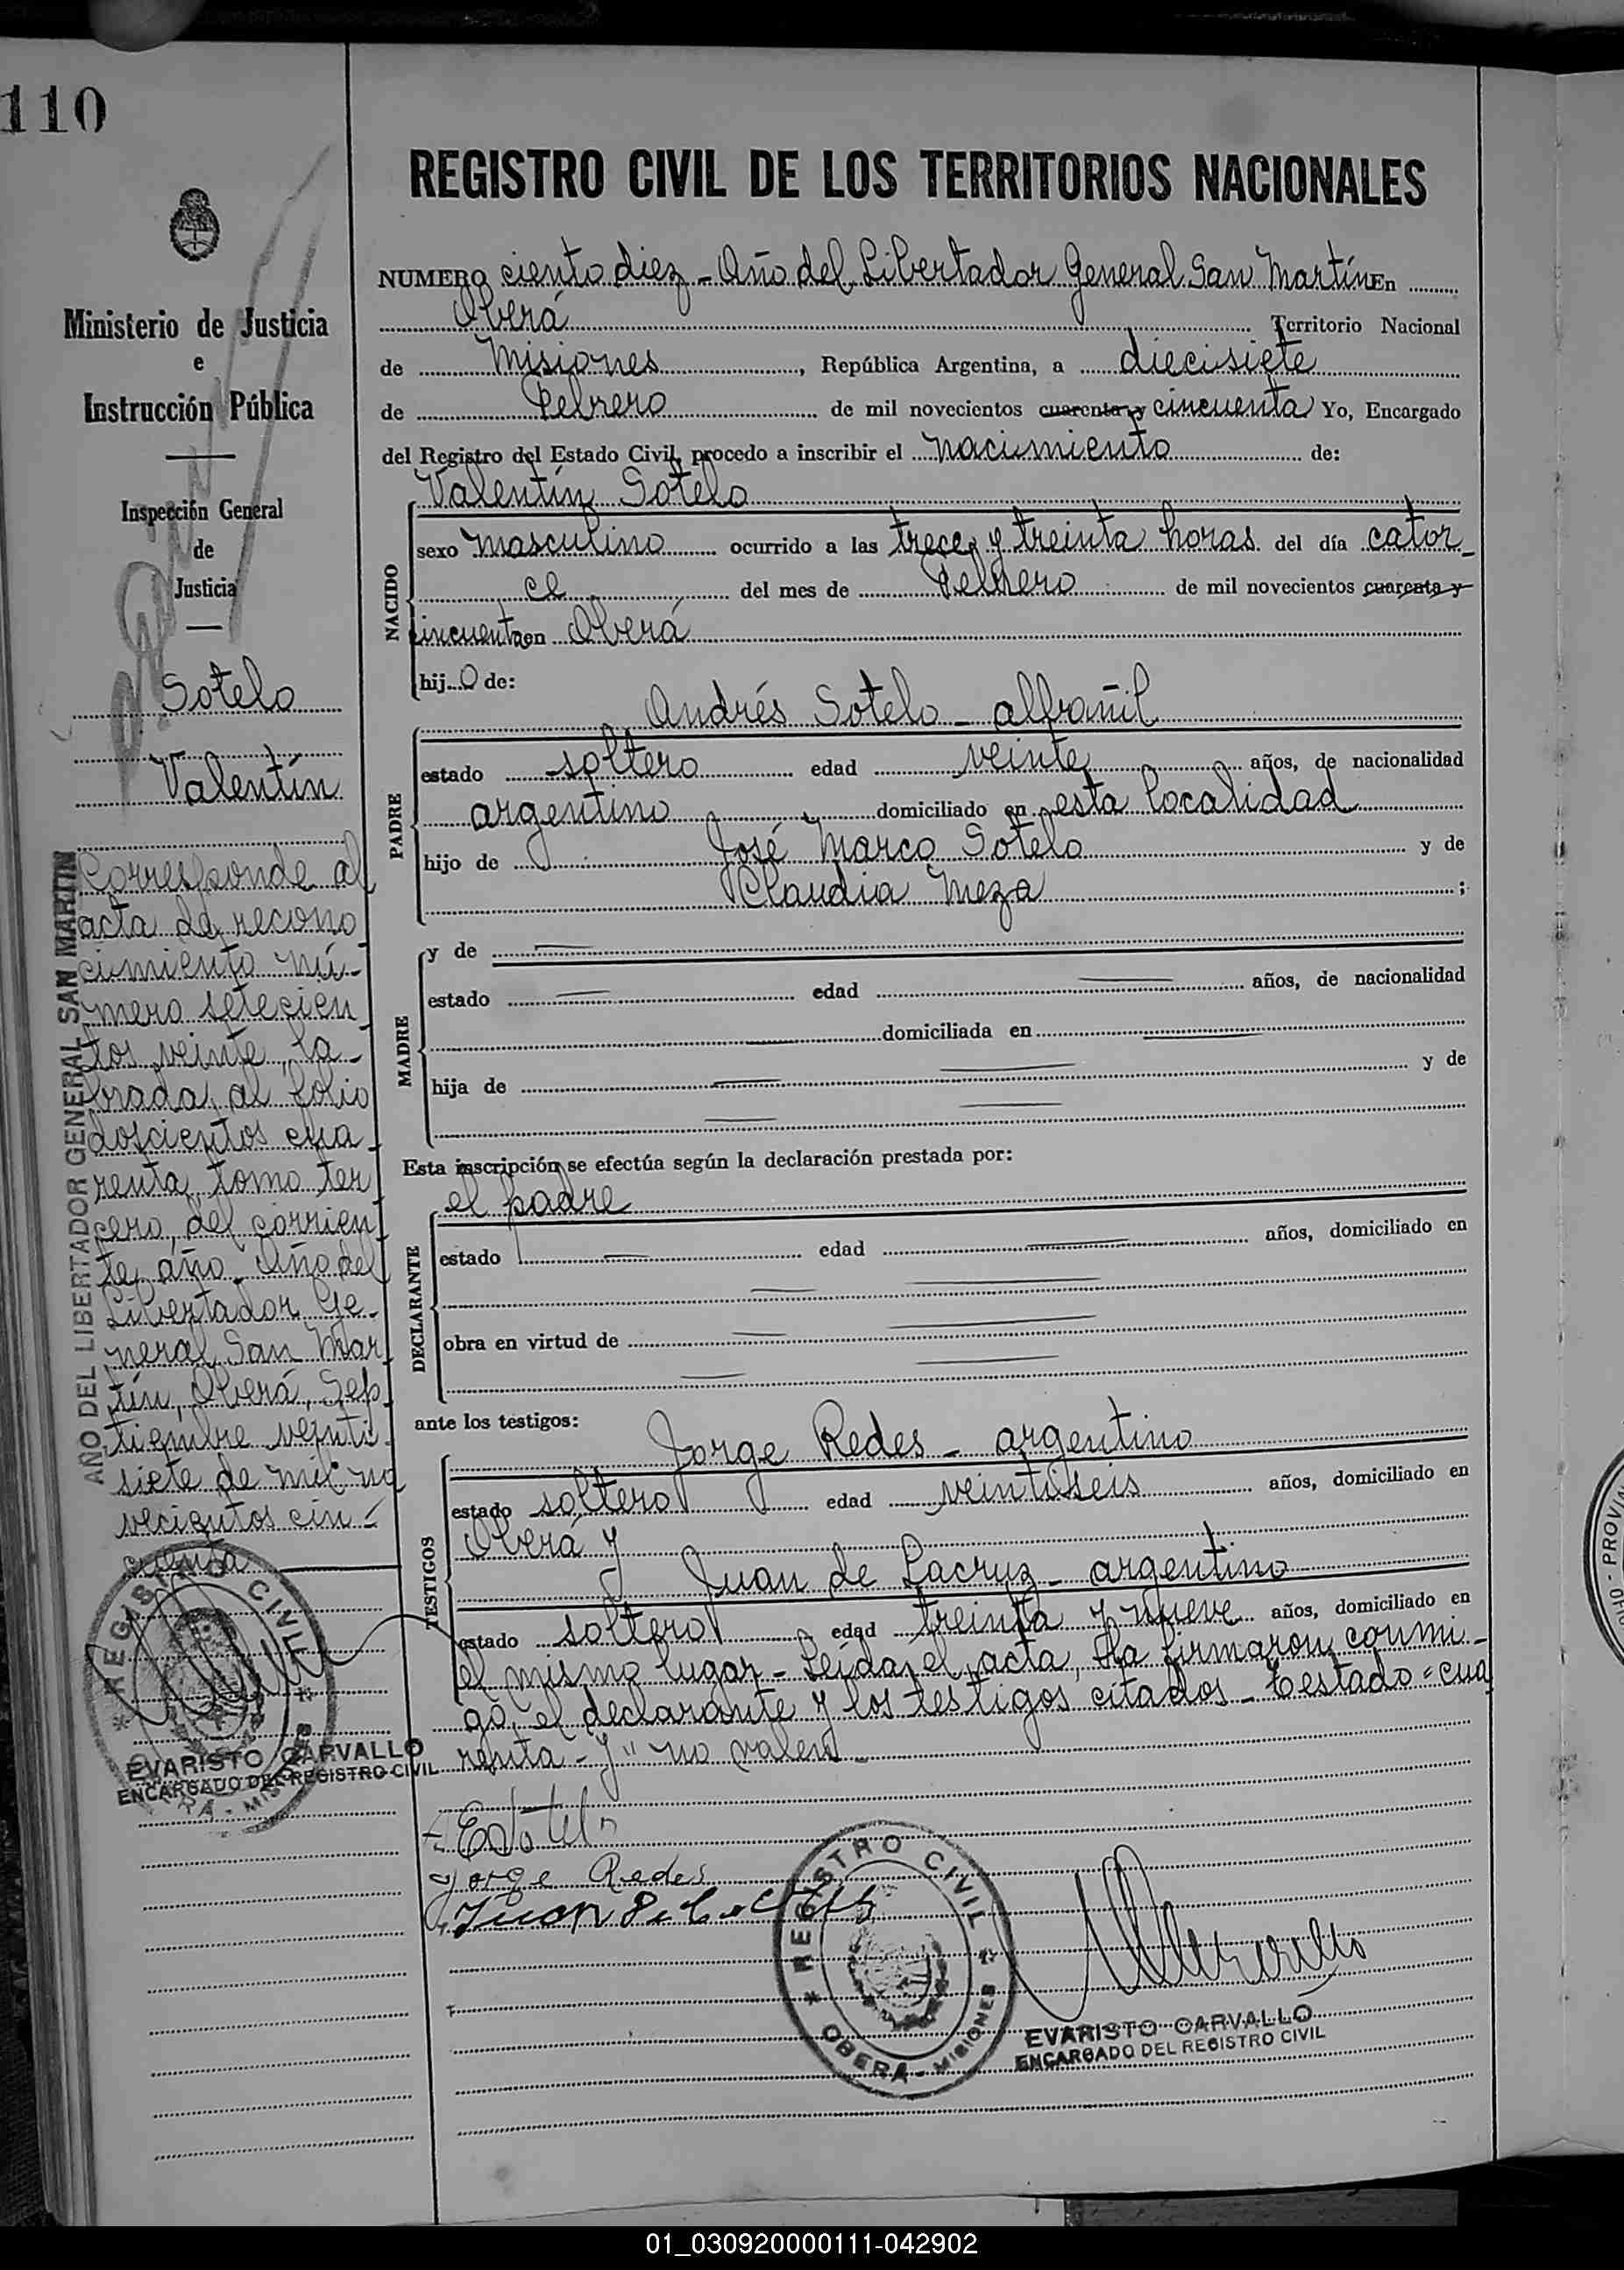 110
Ministerio de Justicia
e
Instrucción Pública
Inspección General
de
Justicia
Sotelo
Valentín
Corresponde al
acta de recono
cimiento nú-
mero setecien
tos veinte la-
brada, al folio
doscientos cua-
renta, tomo ter
cero, del corrien
te año. Año del
Libertador Ge-
neral San Mar
tín, Oberá, Sep
tiembre veinti
siete de mil no
vecientos cin-
cuenta
AÑO DEL LIBERTADOR GENERAL SAN MARTIN
REGISTRO CIVIL
OBERA - MISIONES
EVARISTO CARVALLO
ENCARGADO DEL REGISTRO CIVIL
REGISTRO CIVIL DE LOS TERRITORIOS NACIONALES
NUMERO ciento diez - Año del Libertador General San Martín En
Oberá Territorio Nacional
de Misiones, República Argentina, a diecisiete
de Febrero de mil novecientos cuarenta y cincuenta Yo, Encargado
del Registro del Estado Civil, procedo a inscribir el nacimiento de:
Valentín Sotelo
NACIDO
sexo masculino ocurrido a las trece y treinta horas del día cator-
ce del mes de Febrero de mil novecientos cuarenta y
cincuenta en Oberá
hijo de:
PADRE
Andrés Sotelo - albañil
estado soltero edad veinte años, de nacionalidad
argentino domiciliado en esta localidad
hijo de José Marco Sotelo y de
Claudia Meza ;
MADRE
y de
estado edad años, de nacionalidad
domiciliada en
hija de y de
Esta inscripción se efectúa según la declaración prestada por:
DECLARANTE
el padre
estado edad años, domiciliado en
obra en virtud de
ante los testigos:
TESTIGOS
Jorge Redes - argentino
estado soltero edad veintiseis años, domiciliado en
Oberá y
Juan de Lacruz - argentino
estado soltero edad treinta y nueve años, domiciliado en
el mismo lugar - Leída el acta, la firmaron conmi-
go, el declarante y los testigos citados - Testado "cua
renta - y" no valen -
Jorge Redes
REGISTRO CIVIL
OBERA - MISIONES
EVARISTO CARVALLO
ENCARGADO DEL REGISTRO CIVIL
01_030920000111-042902